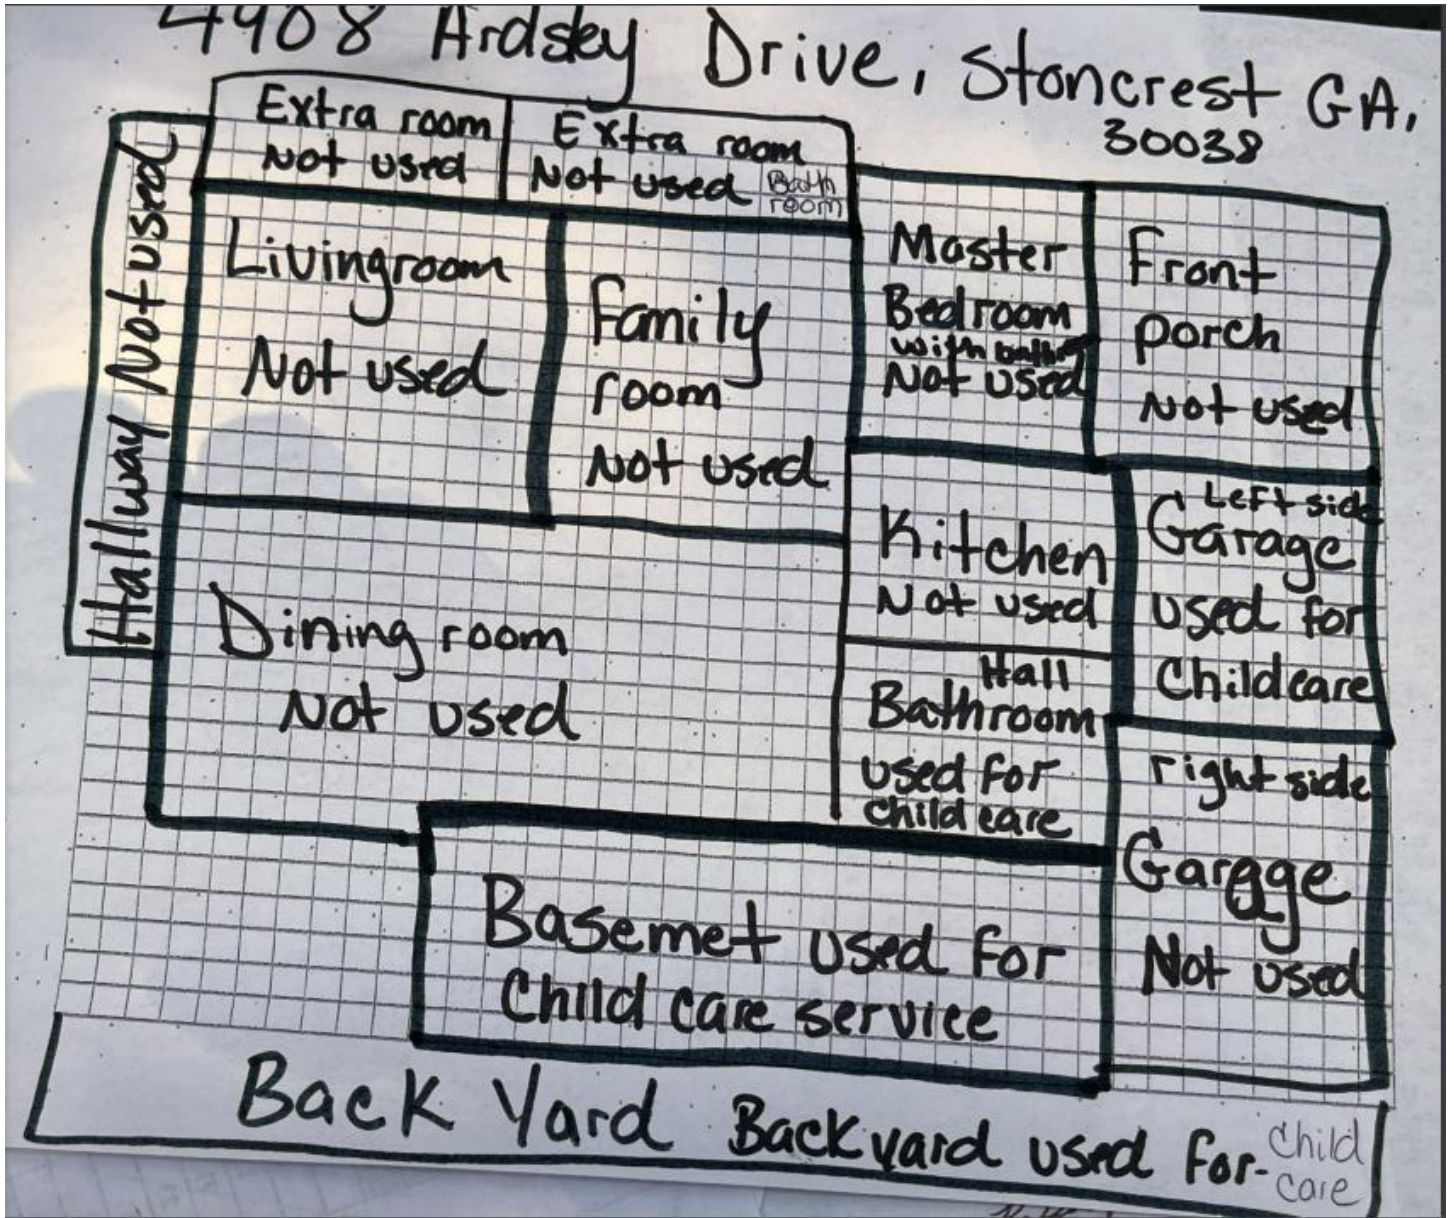 4908 Ardsley Drive, Stoncrest GA,
30038
Extra room
Not used
Extra room
Not used
Bath
room
Hallway Not used
Livingroom
Not used
Family
room
Not used
Master
Bedroom
with bath
Not used
Front
porch
Not used
Kitchen
Not used
Left side
Garage
used for
Childcare
Dining room
Not used
Hall
Bathroom
used for
Child care
right side
Garage
Not used
Basemet used for
Child care service
Back Yard Backyard used for-
Child
care